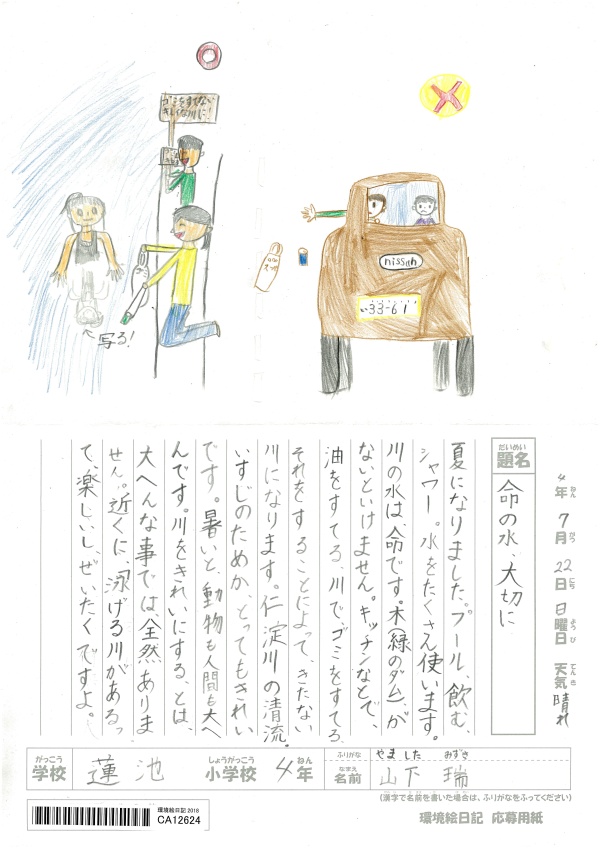 ゴミをすてない
きれいな川に！
写る！
nissan
い33-61
4年 7月 22日 日曜日 天気 晴れ
ねん がつ にち ようび てんき
だいめい
題名
命の水、大切に
夏になりました。プール、飲む、
シャワー。水をたくさん使います。
川の水は、命です。木(緑のダム)が
ないといけません。キッチンなどで、
油をすてる、川で、ゴミをすてる、
それをすることによって、きたない
川になります。仁淀川の清流。
いすじのためか、とってもきれい
です。暑いと、動物も人間も大へ
んです。川をきれいにする、とは、
大へんな事では、全然ありま
せん。近くに、泳げる川があるっ
て、楽しいし、ぜいたくですよ。
がっこう しょうがっこう ねん
学校 蓮池 小学校 4年
ふりがな やました みずき
なまえ
名前 山下 瑞
(漢字で名前を書いた場合は、ふりがなをふってください)
環境絵日記 応募用紙
環境絵日記 2018
CA12624